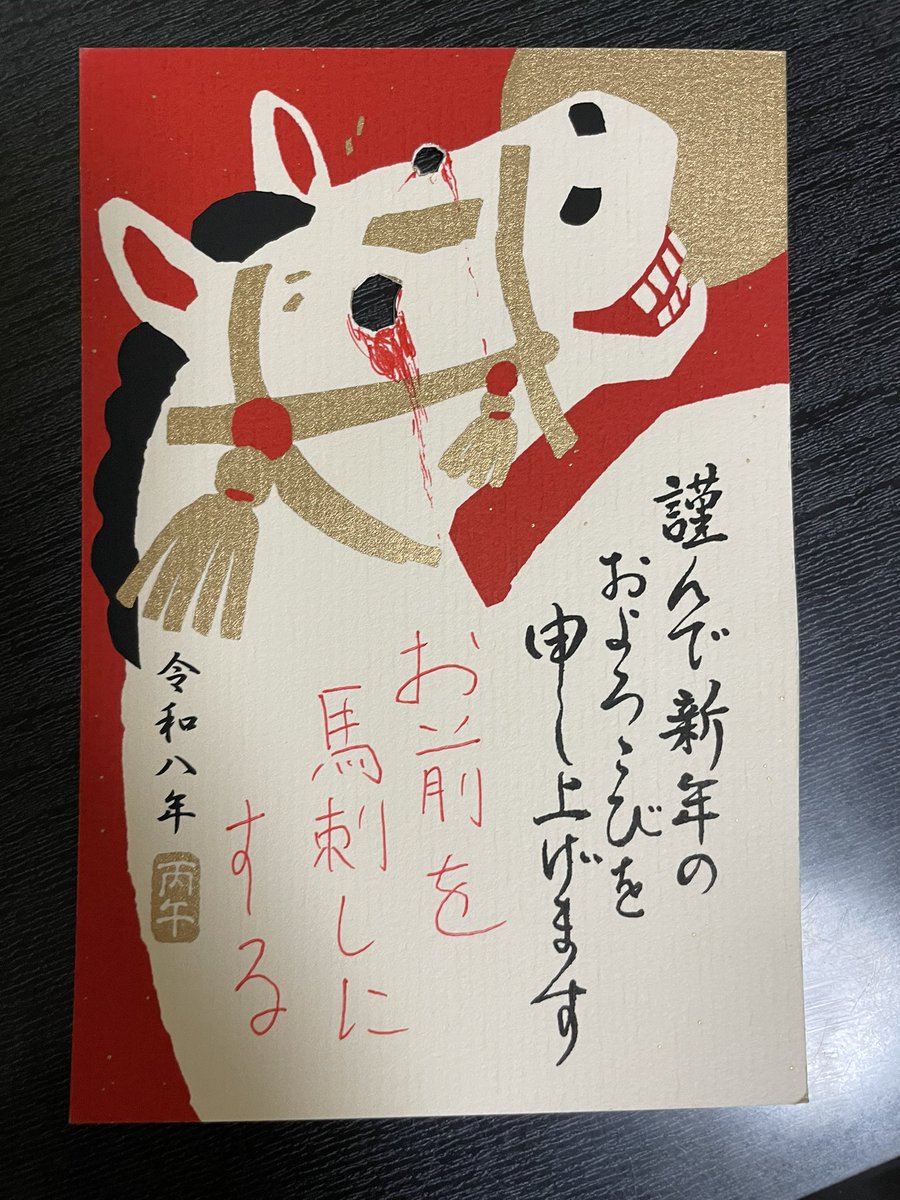 謹んで新年の
およろこびを
申し上げます
お前を
馬刺しに
する
令和八年
丙午